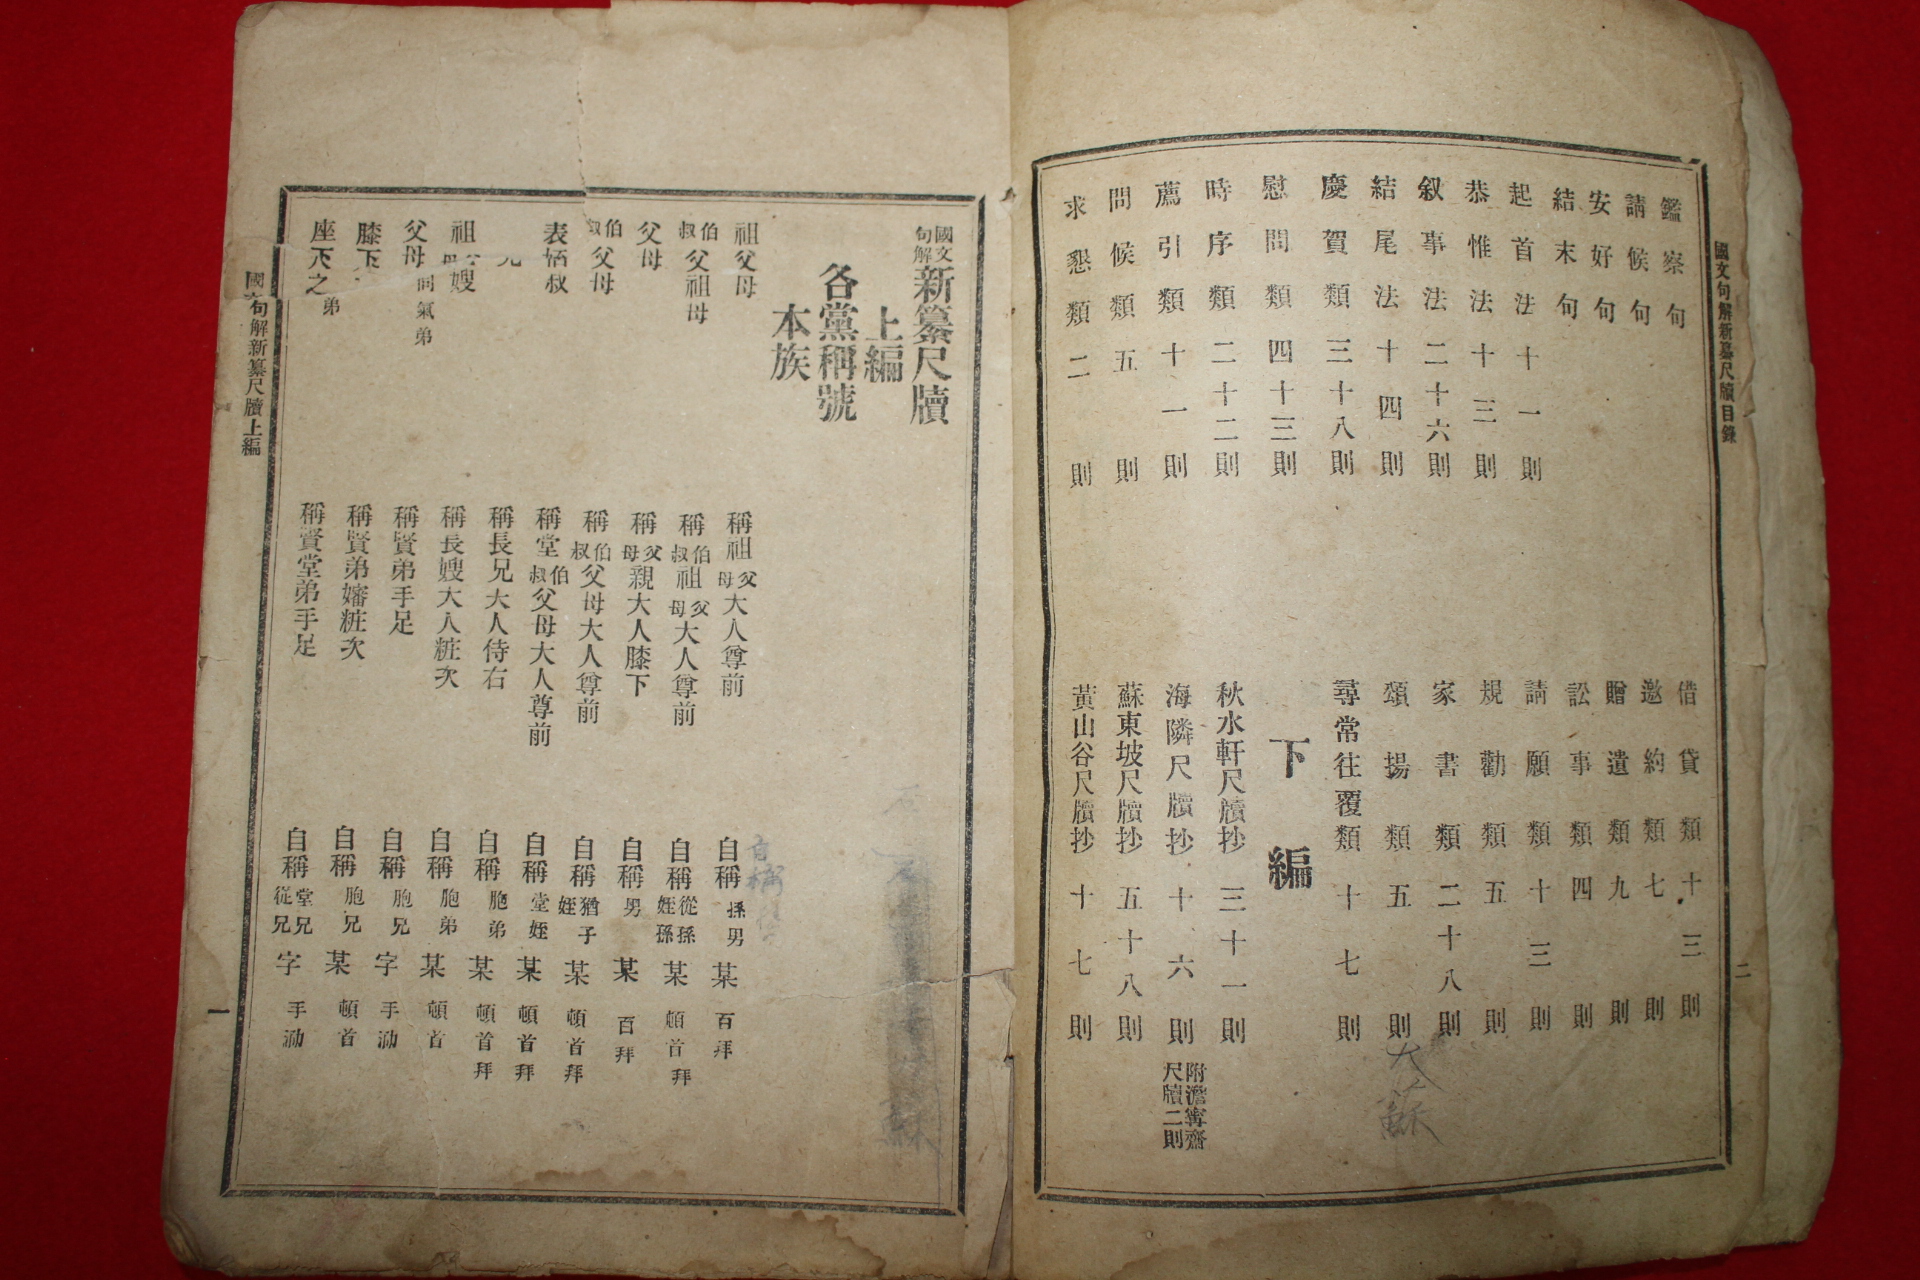 國文句解新纂尺牘目錄
二
鑑察句
請候句
安好句
結末句
起首法十一則
恭惟法十三則
叙事法二十六則
結尾法十四則
慶賀類三十八則
慰問類四十三則
時序類二十二則
薦引類十一則
問候類五則
求懇類二則
借貸類十三則
邀約類七則
贈遺類九則
訟事類四則
請願類十三則
規勸類五則
家書類二十八則
頌揚類五則
尋常往覆類十七則
下編
秋水軒尺牘抄三十一則
海隣尺牘抄十六則附澹寗齋尺牘二則
蘇東坡尺牘抄五十八則
黃山谷尺牘抄十七則
大蘇
國文句解新纂尺牘
上編
各黨稱號
本族
祖父母 稱祖父母大人尊前 自稱孫男某百拜
伯叔父祖母 稱伯叔祖父母大人尊前 自稱從孫姪孫某頓首拜
父母 稱父母親大人膝下 自稱男某百拜
伯叔父母 稱伯叔父母大人尊前 自稱猶子姪某頓首拜
表叔 稱堂伯叔父母大人尊前 自稱堂姪某頓首拜
兄 稱長兄大人侍右 自稱胞弟某頓首拜
祖嫂 稱長嫂大人粧次 自稱胞弟某頓首
父母同氣弟 稱賢弟手足 自稱胞兄字手泐
膝下 稱賢弟嬸粧次 自稱胞兄某頓首
座下之弟 稱賢堂弟手足 自稱堂兄從兄字手泐
國文句解新纂尺牘上編
一